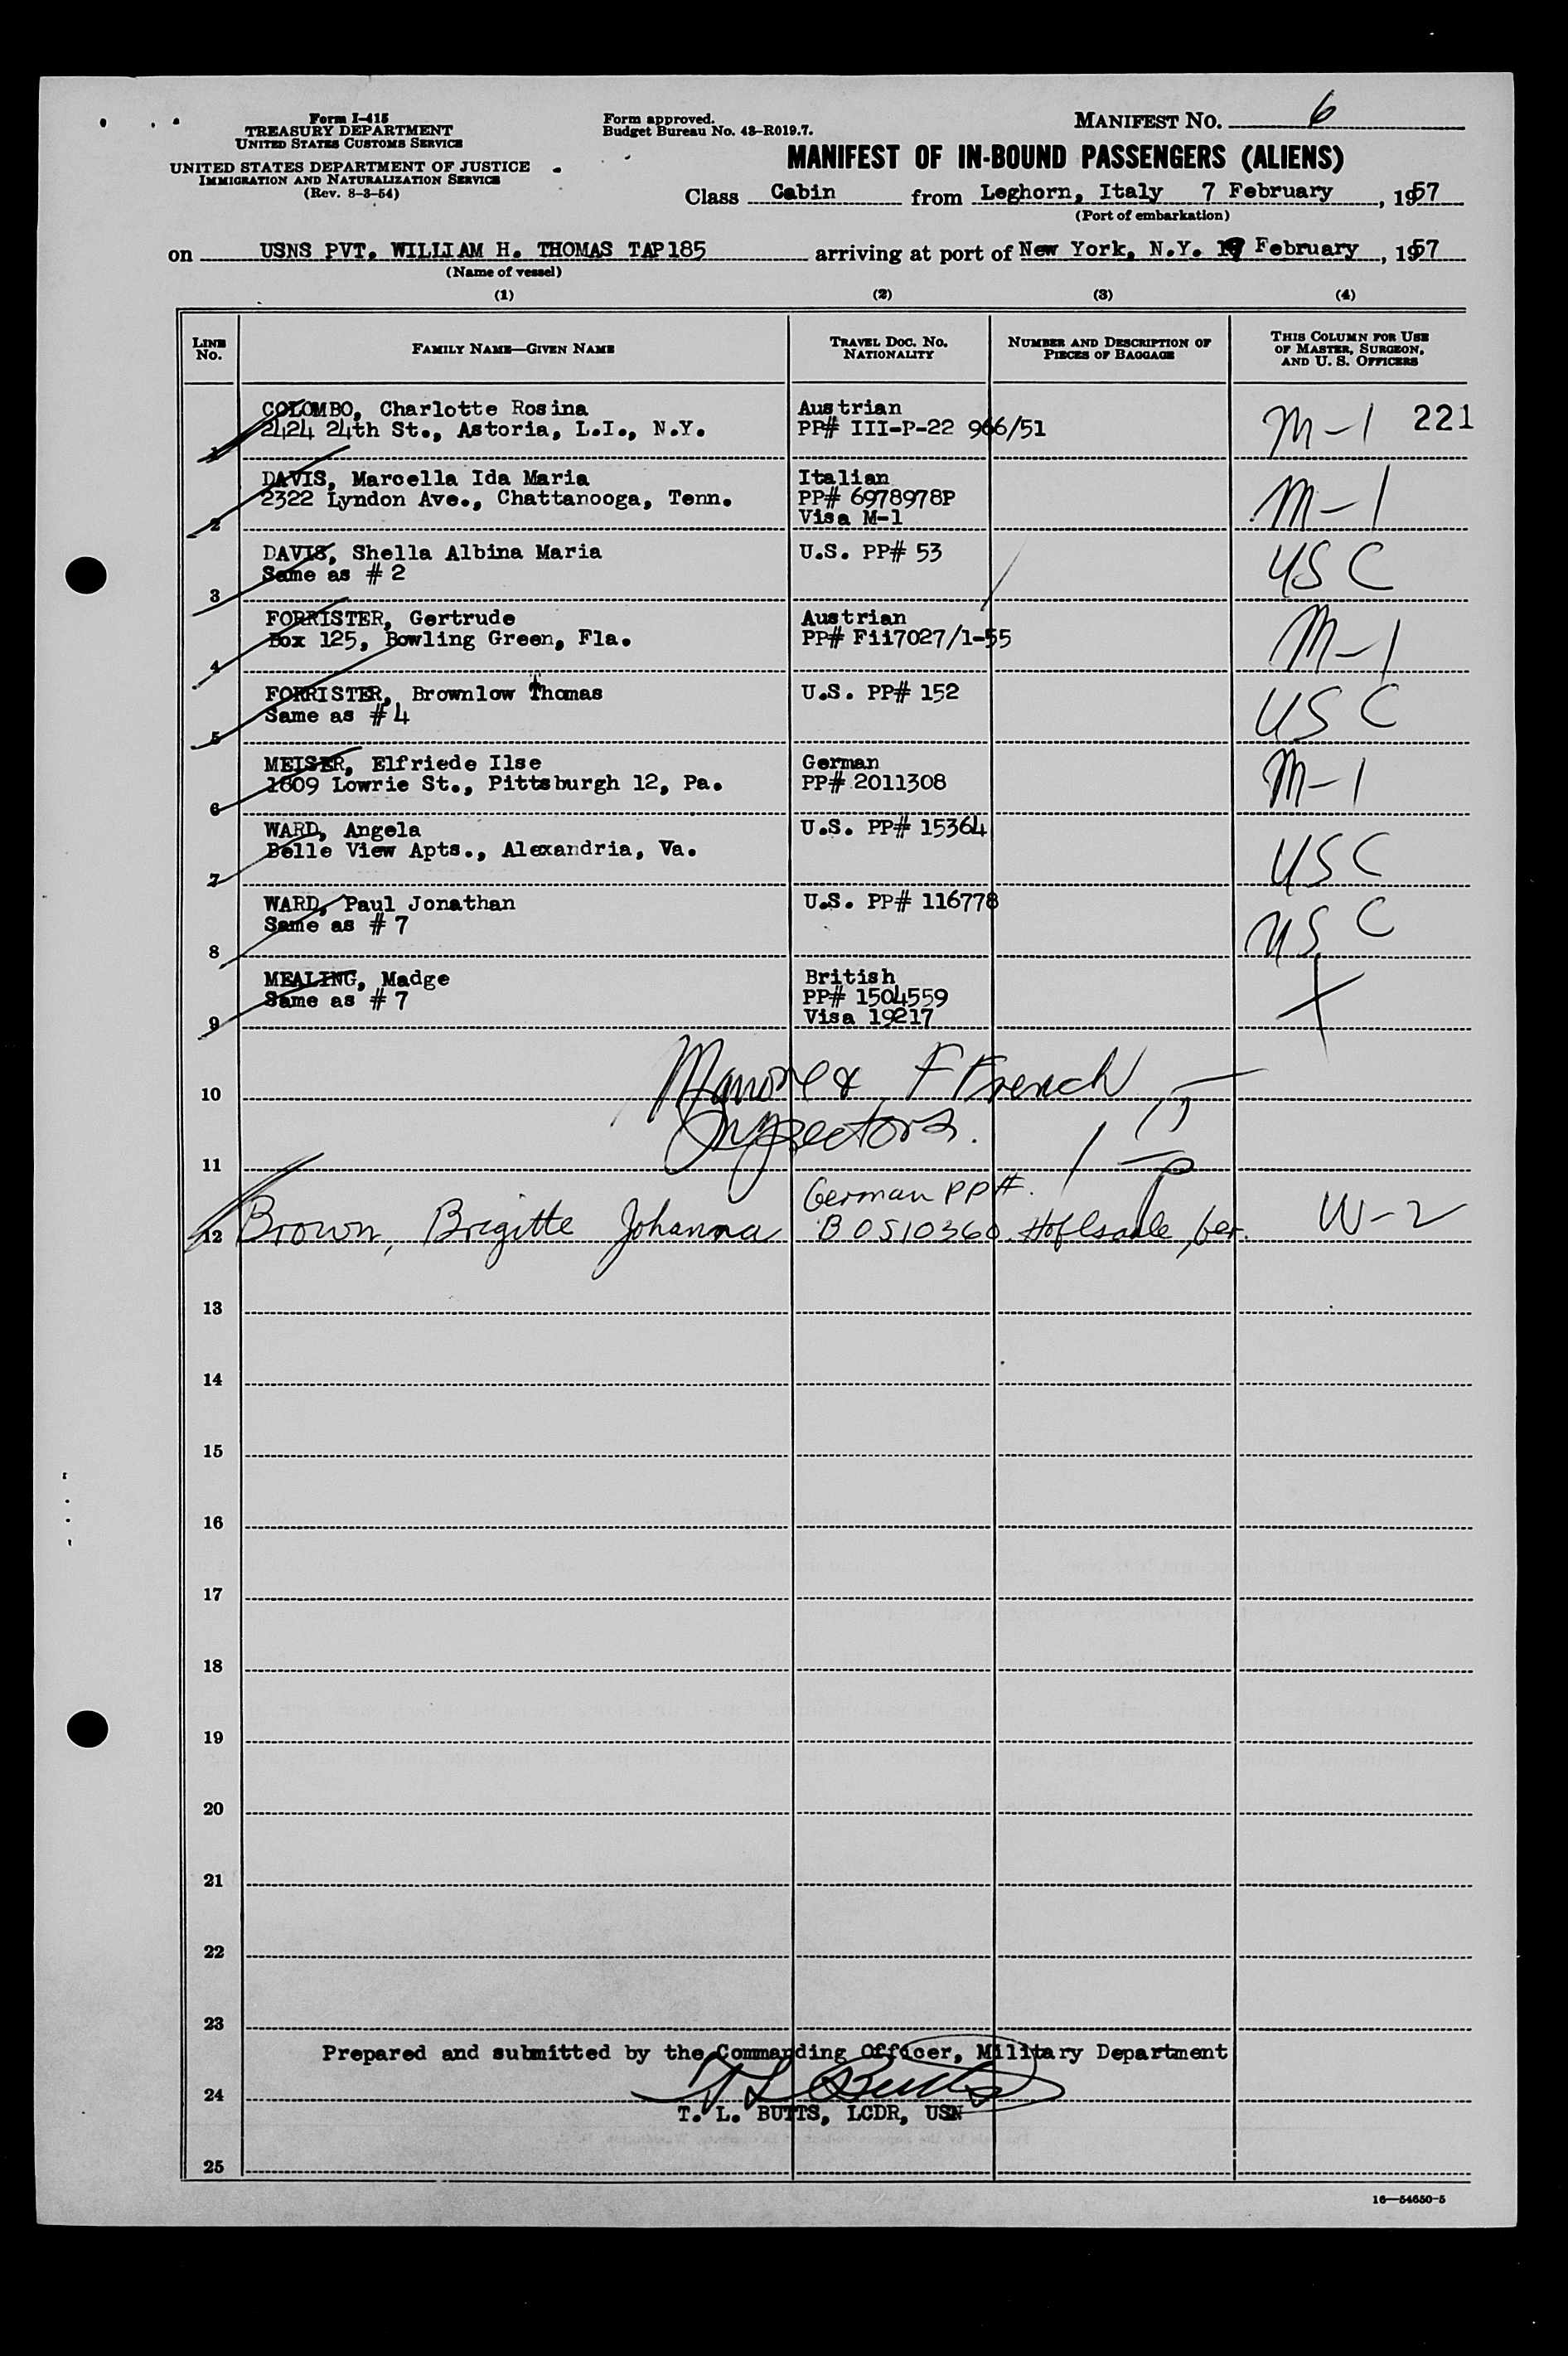 Form I-415
TREASURY DEPARTMENT
UNITED STATES CUSTOMS SERVICE
UNITED STATES DEPARTMENT OF JUSTICE
IMMIGRATION AND NATURALIZATION SERVICE
(Rev. 8-3-54)
Form approved.
Budget Bureau No. 43-R019.7.
MANIFEST NO. 6
MANIFEST OF IN-BOUND PASSENGERS (ALIENS)
Class Cabin from Leghorn, Italy 7 February, 1957
(Port of embarkation)
on USNS PVT. WILLIAM H. THOMAS TAP185 arriving at port of New York, N.Y. February, 1957
(Name of vessel)
(1) (2) (3) (4)
LINE No.
FAMILY NAME—GIVEN NAME
TRAVEL DOC. NO. NATIONALITY
NUMBER AND DESCRIPTION OF PIECES OF BAGGAGE
THIS COLUMN FOR USE OF MASTER, SURGEON, AND U. S. OFFICERS
COLOMBO, Charlotte Rosina Austrian
1 2424 24th St., Astoria, L.I., N.Y. PP# III-P-22 966/51 M-1 221
DAVIS, Marcella Ida Maria Italian
2322 Lyndon Ave., Chattanooga, Tenn. PP# 6978978P M-1
2 Visa M-1
DAVIS, Shella Albina Maria U.S. PP# 53 USC
3 Same as # 2
FORRISTER, Gertrude Austrian
4 Box 125, Bowling Green, Fla. PP# Fii7027/1-55 M-1
FORRISTER, Brownlow Thomas U.S. PP# 152 USC
5 Same as # 4
MEISER, Elfriede Ilse German
6 1609 Lowrie St., Pittsburgh 12, Pa. PP# 2011308 M-1
WARD, Angela U.S. PP# 15364
7 Belle View Apts., Alexandria, Va. USC
WARD, Paul Jonathan U.S. PP# 116778
8 Same as # 7 USC
MEALING, Madge British
Same as # 7 PP# 1504559 X
9 Visa 19217
10 & F French
11 Inspectors.
German PP#.
12 Brown, Brigitte Johanna B 0510360 W-2
13
14
15
16
17
18
19
20
21
22
23
Prepared and submitted by the Commanding Officer, Military Department
24 T L Butts
T. L. BUTTS, LCDR, USN
25
16—54650-5